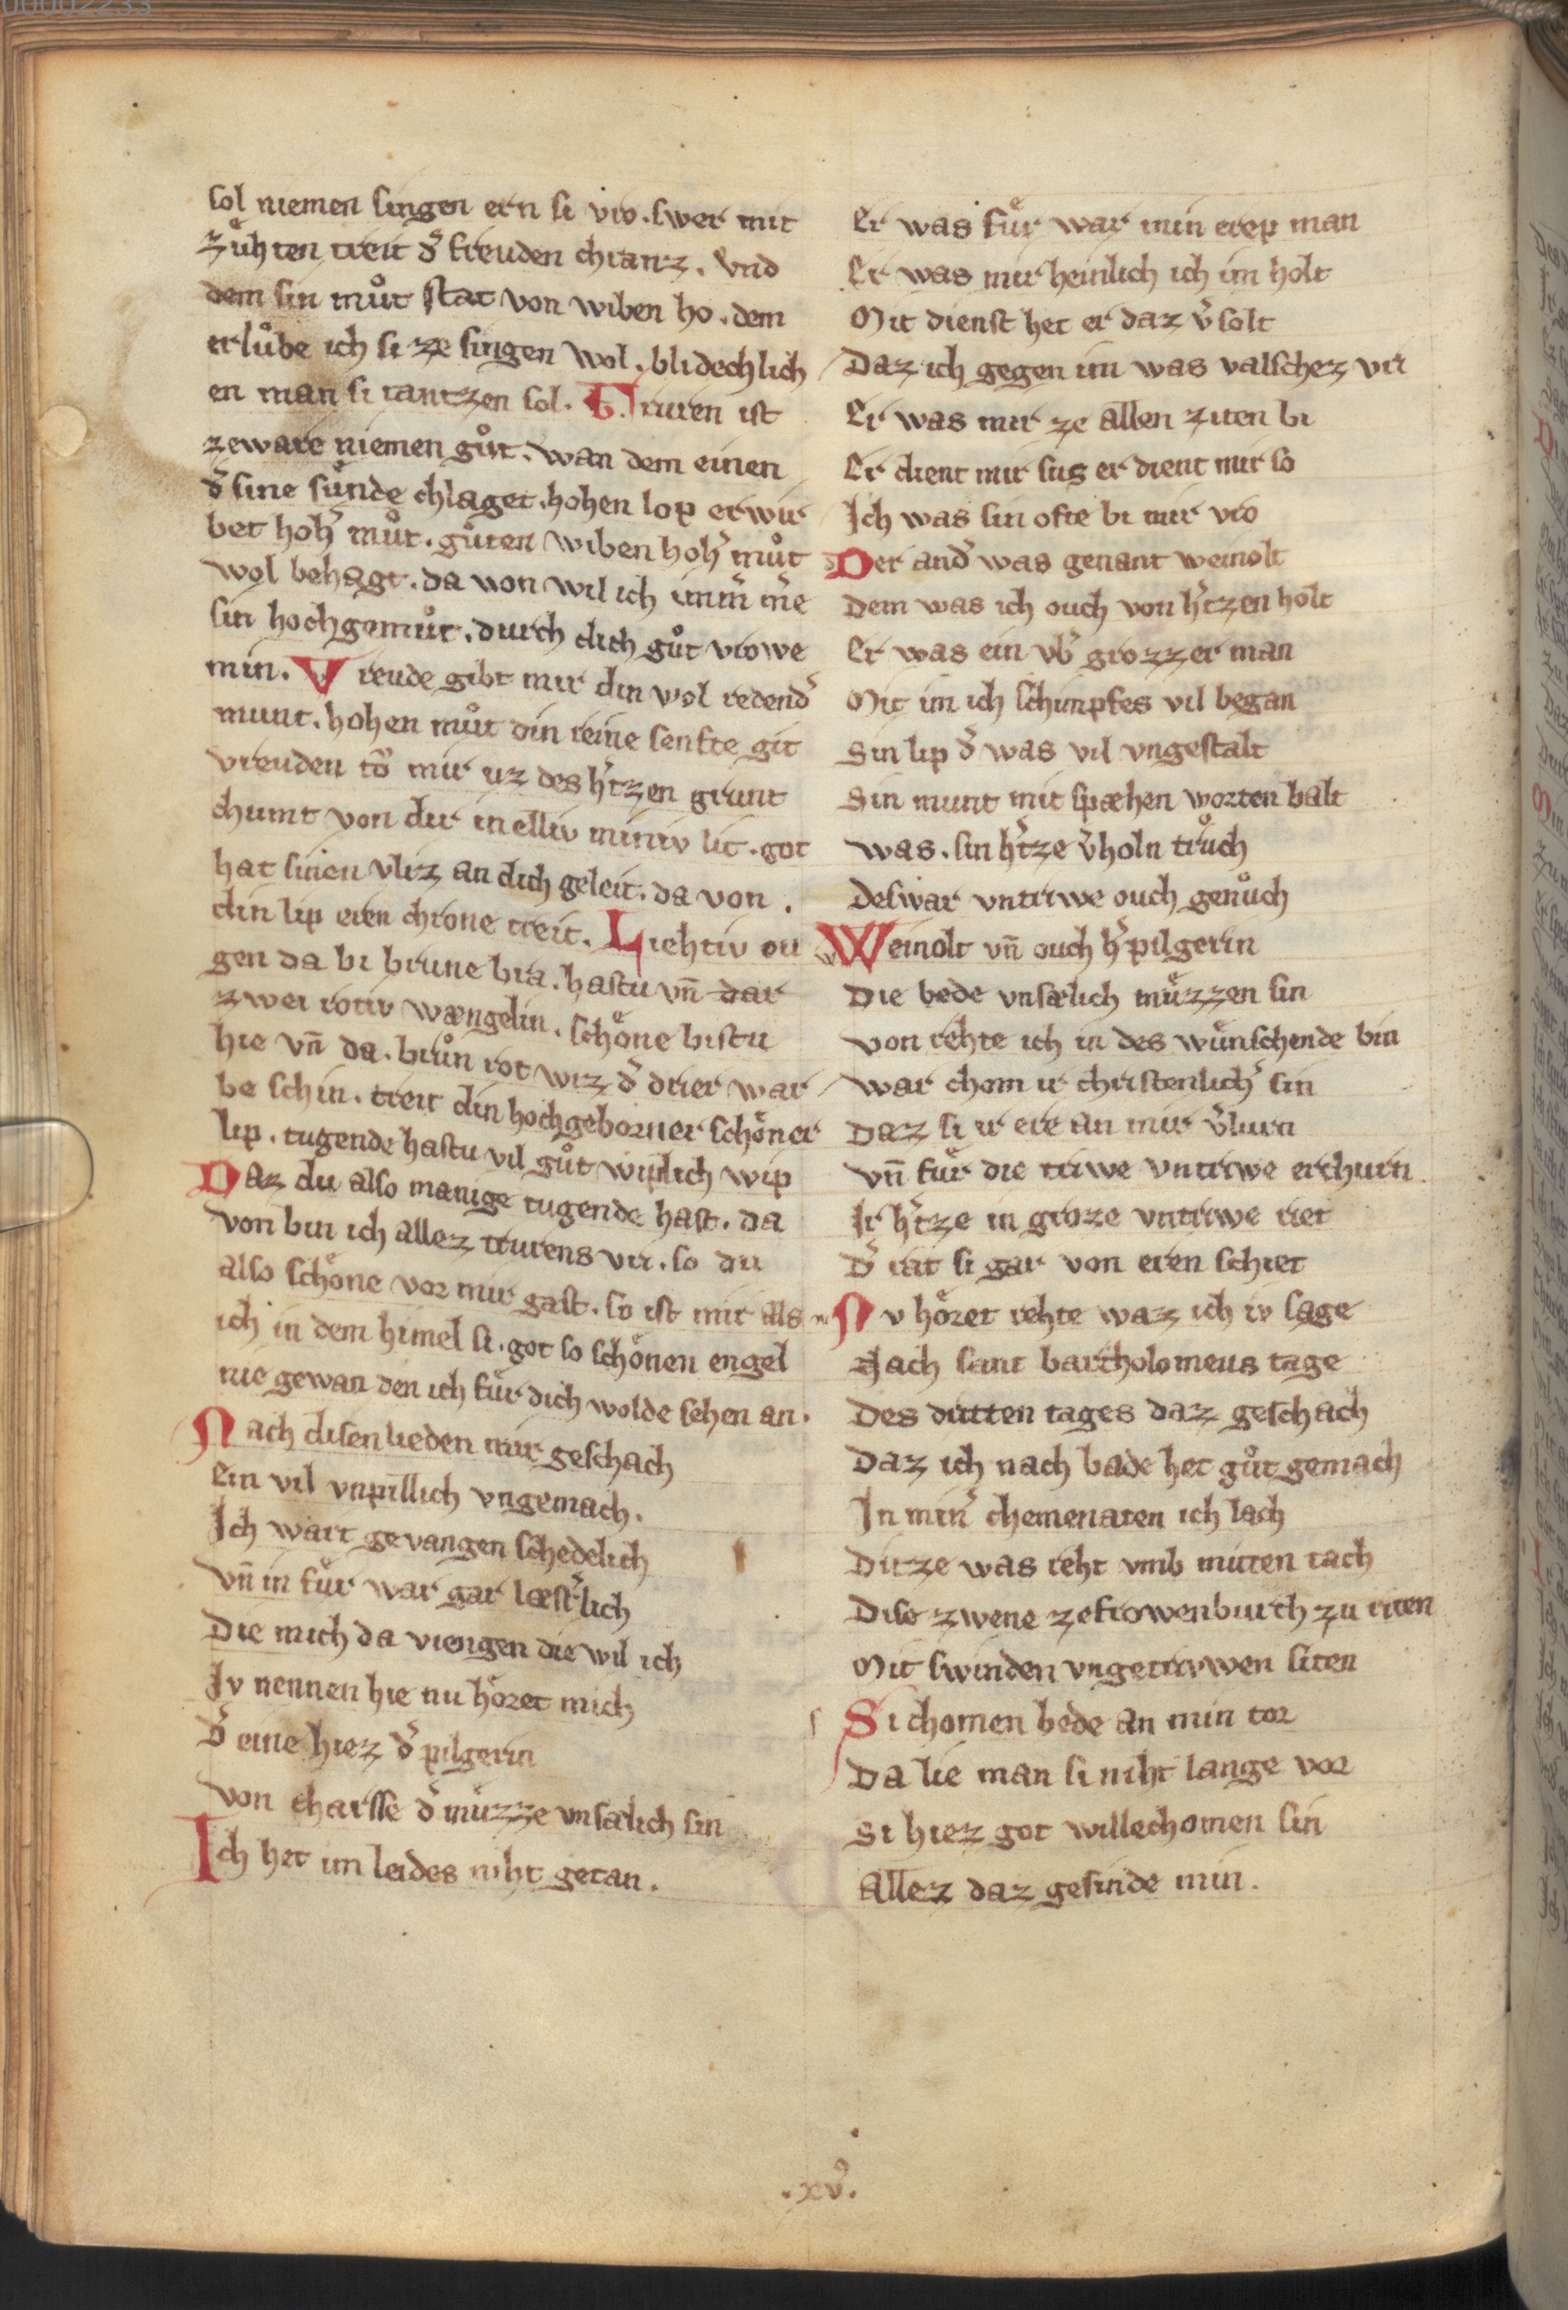 00002233
sol niemen singen ern si vro. swer mit
zuͤhten treit d̕ freuden chranz. vnd
dem sin muͦt stat von wiben ho. dem
erluͦbe ich si ze singen wol. blidechlich
en man si tantzen sol. Truren ist
zeware niemen guͦt. wan dem einen
d̕ sine suͤnde chlaget. hohen lop erwir
bet hoh̕ muͦt. guͦten wiben hoh̕ muͦt
wol behagt. da von wil ich imm̕ m̕e
sin hochgemuͦt. durch dich guͦt vrowe
min. Vreude gibt mir din wol redend̕
munt. hohen muͦt din reine senfte git
vreuden to͛ mir uz des h̕tzen grunt
chumt von dir in elliv miniv lit. got
hat sinen vliz an dich geleit. da von.
din lip eren chrone treit. Liehtiv ou
gen da bi brune bra. hastu vn̄ dar
zwei rotiv wængelin. schoͤne bistu
hie vn̄ da. bruͦn rot wiz d̕ drier var
be schin. treit din hochgeborner schoͤner
lip. tugende hastu vil guͦt wiplich wip
Daz du also manige tugende hast. da
von bin ich allez trurens vri. so du
also schoͤne vor mir gast. so ist mir als
ich in dem himel si. got so schoͤnen engel
nie gewan den ich fuͤr dich wolde sehen an.
Nach disen lieden mir geschach
Ein vil vnpillich vngemach.
Ich wart gevangen schedelich
vn̄ in fuͤr war gar læst̕lich
Die mich da viengen die wil ich
Iv nennen hie nu hoͤret mich
D̕ eine hiez d̕ pilgerin
von charsse d̕ muͤzze vnsælich sin
Ich het im leides niht getan.
Er was fuͤr war min erep man
Er was mir heinlich ich im holt
Mit dienst het er daz v̕solt
Daz ich gegen im was valschez vri
Er was mir ze allen ziten bi
Er dient mir sus er dient mir so
Ich was sin ofte bi mir vro
Der and̕ was genant weinolt
Dem was ich ouch von h̕tzen holt
Er was ein vb̕ grozzer man
Mit im ich schimpfes vil began
Sin lip d̕ was vil vngestalt
Sin munt mit spæhen worten balt
was. sin h̕tze v̕holn truͦch
Deswar vntriwe ouch genuͦch
Weinolt vn̄ ouch h̕ pilgerin
Die bede vnsælich muͤzzen sin
von rehte ich in des wuͤnschende bin
war chom ir christenlich̕ sin
Daz si ir ere an mir v̕lurn
vn̄ fuͤr die triwe vntriwe erchurn
Ir h̕tze in groze vntriwe riet
D̕ rat si gar von eren schiet
Nv hoͤret rehte waz ich iv sage
Nach sant bartholomeus tage
Des dritten tages daz geschach
Daz ich nach bade het guͦt gemach
In min̕ chemenaten ich lach
Ditze was reht vmb mitten tach
Dise zwene ze frowenburch zu riten
Mit swinden vngetrivwen siten
Si chomen bede an min tor
Da lie man si niht lange vor
Si hiez got willechomen sin
Allez daz gesinde min.
.xv̕.